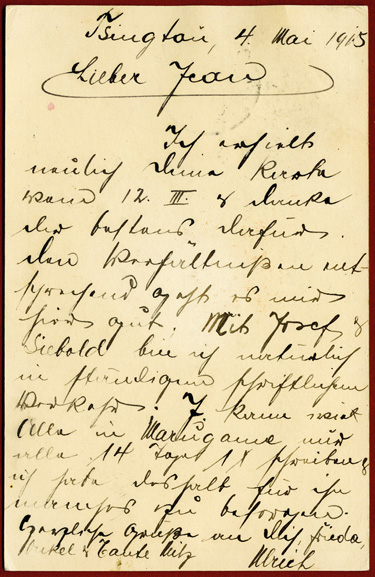 Tsingtau, 4. Mai 1915
Lieber Jean
Ich erhielt
neulich Deine Karte
vom 12. III. & danke
dir bestens dafür.
Den Verhältnißen ent-
sprechend geht es mir
hier gut. Mit Josef &
Siebold bin ich natürlich
in ständigem schriftlichem
Verkehr. J. kann
Alle in Marugame nur
alle 14 Tage 1 X schreiben &
ich habe deshalb für ihn
manches zu besorgen.
Herzliche Grüße an Dich, Frieda,
Onkel & Tante
Ulrich